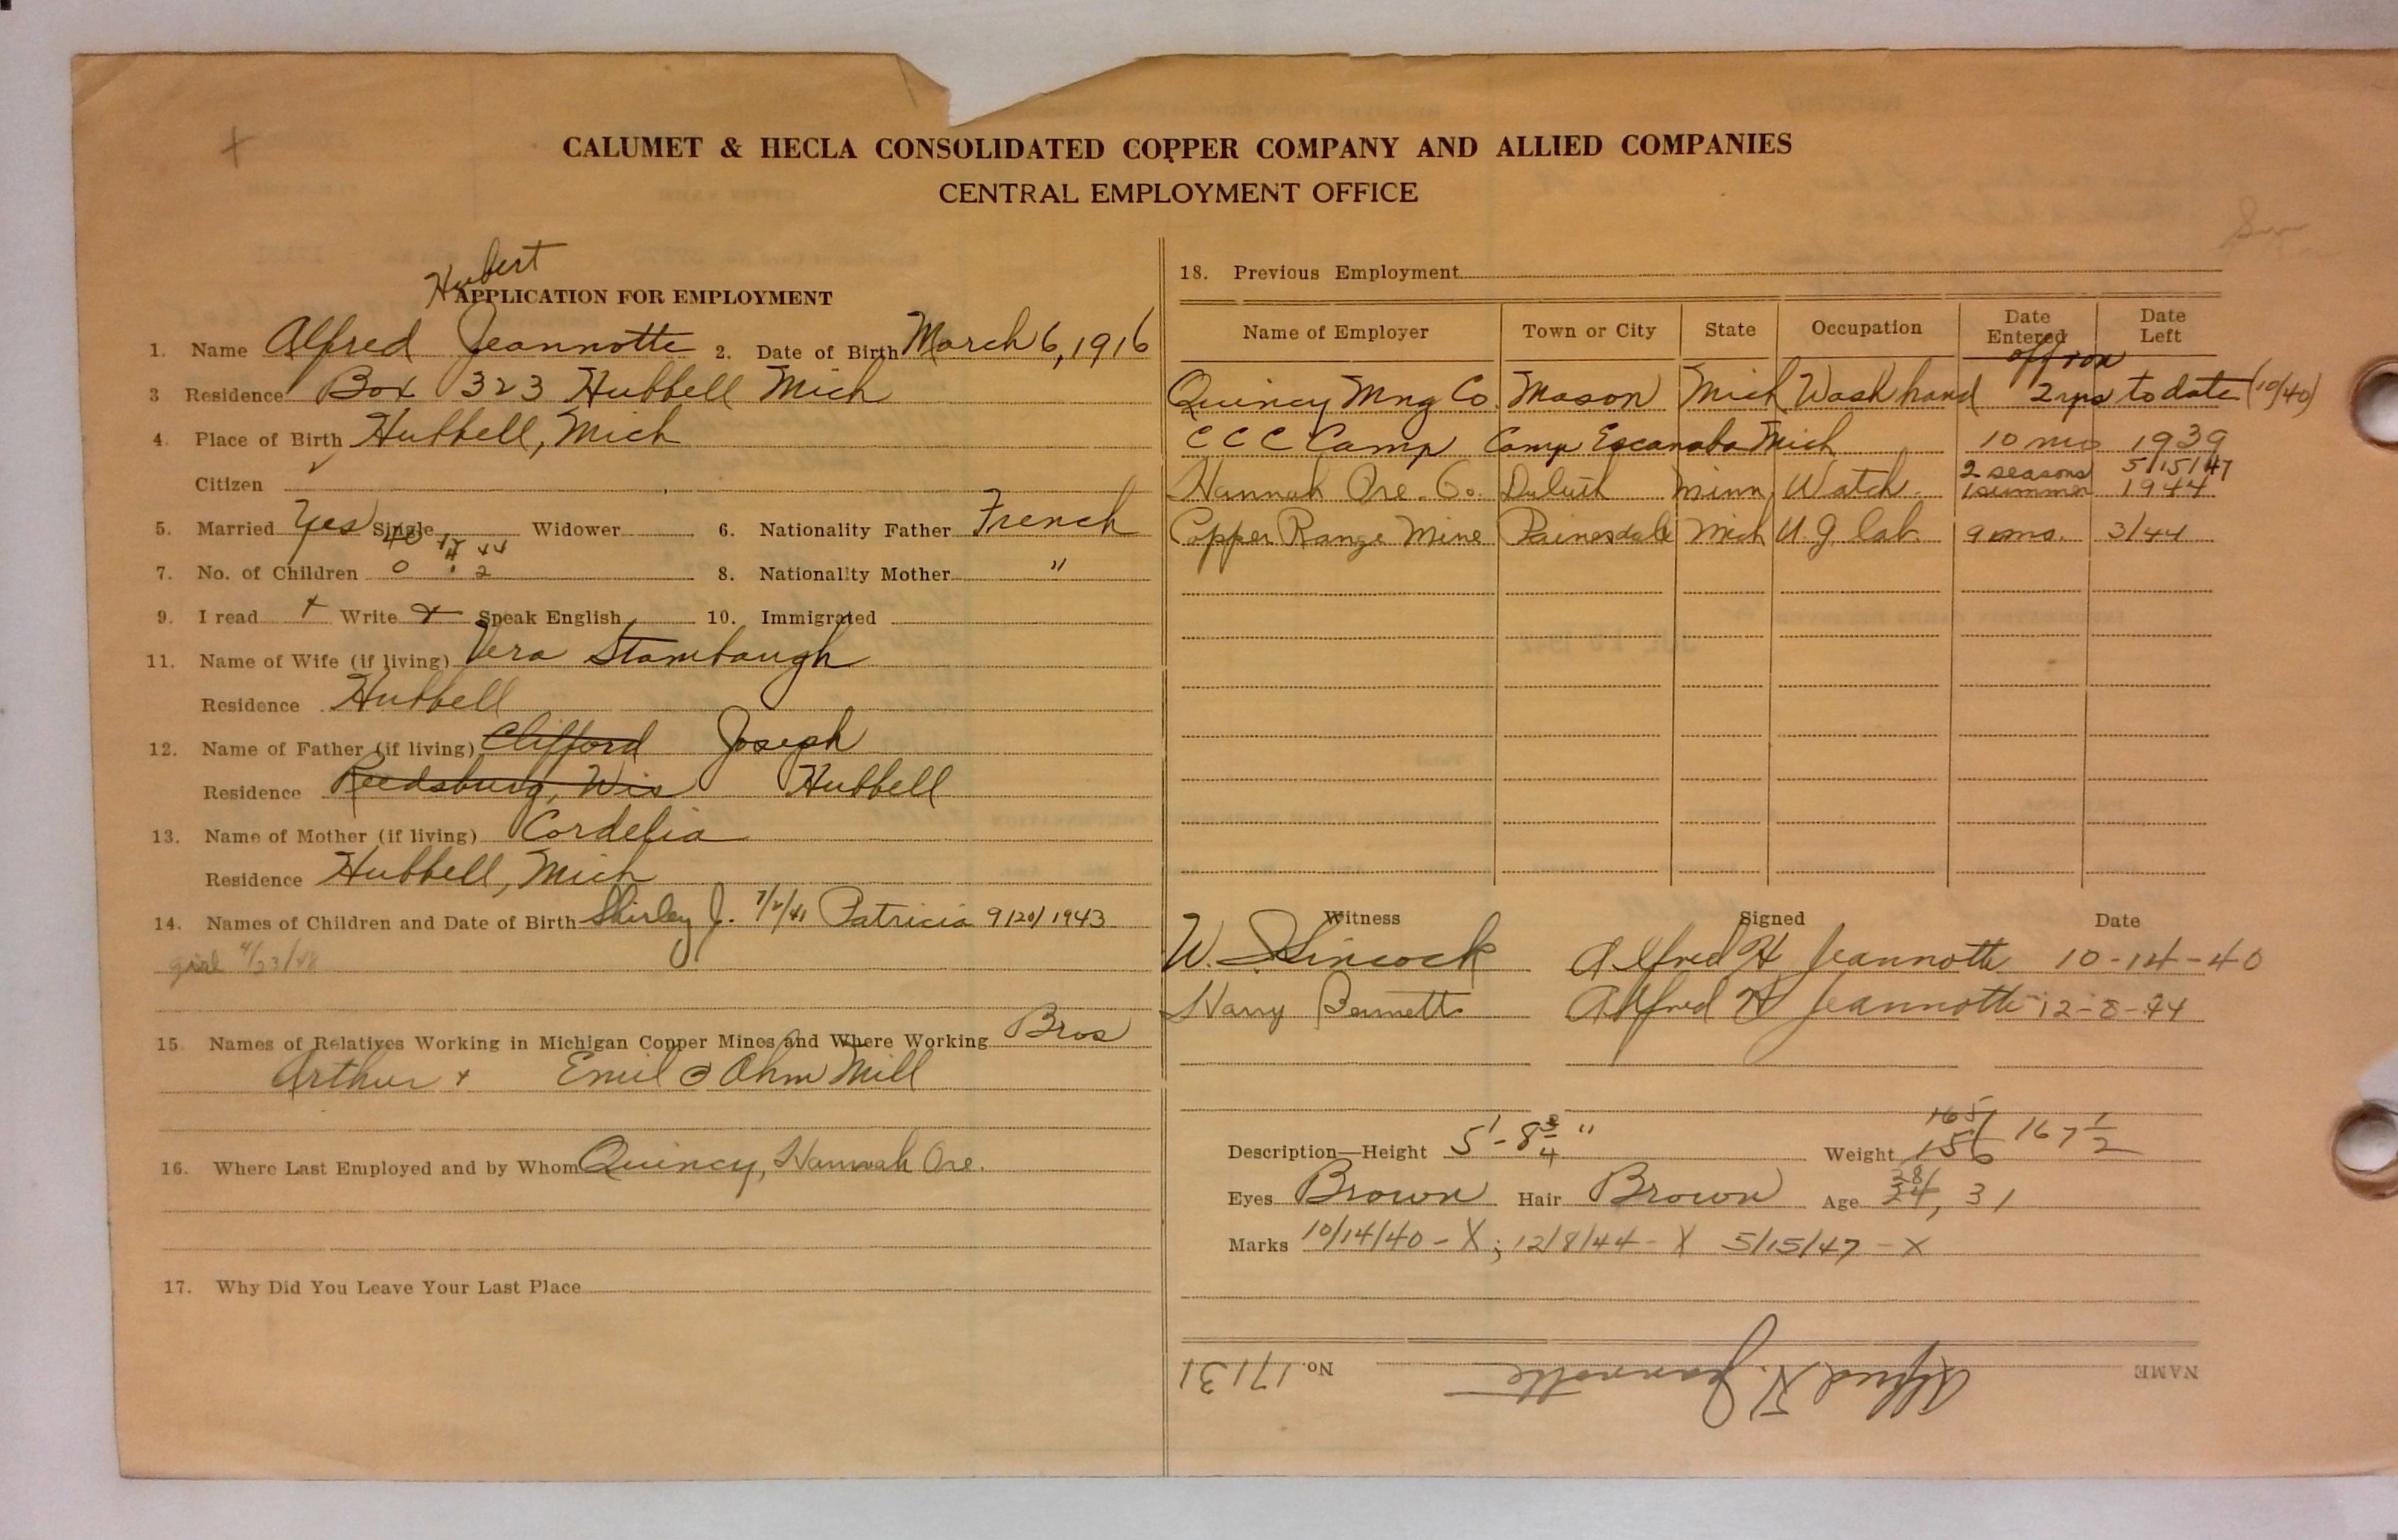 CALUMET & HECLA CONSOLIDATED COPPER COMPANY AND ALLIED COMPANIES
CENTRAL EMPLOYMENT OFFICE
Hubert
APPLICATION FOR EMPLOYMENT
1. Name Alfred Jeannotte 2. Date of Birth March 6, 1916
3 Residence Box 323 Hubbell Mich
4. Place of Birth Hubbell, Mich
Citizen
5. Married Yes Single Widower 6. Nationality Father French
40 44
7. No. of Children 0 2 8. Nationality Mother "
9. I read + Write + Speak English 10. Immigrated
11. Name of Wife (if living) Vera Stambaugh
Residence Hubbell
12. Name of Father (if living) Clifford Joseph
Residence Reedsburg, Wis Hubbell
13. Name of Mother (if living) Cordelia
Residence Hubbell, Mich
14. Names of Children and Date of Birth Shirley J. 7/2/41 Patricia 9/20/1943
girl 4/23/48
15 Names of Relatives Working in Michigan Copper Mines and Where Working Bros
Arthur + Emil Ahm Mill
16. Where Last Employed and by Whom Quincy, Hannah Ore.
17. Why Did You Leave Your Last Place
18. Previous Employment
Name of Employer Town or City State Occupation Date Entered Date Left
off + on
Quincy Mng Co. Mason Mich Wash hand 2 yrs to date (10/40)
C C C Camp Camp Escanaba Mich 10 mo 1939
2 seasons 5/15/47
Hannah Ore Co. Duluth Minn. Watch. 1 summer 1944
Copper Range Mine Painesdale Mich U.g. lab. 9 mo. 3/44
Witness Signed Date
W. Hincock Alfred H Jeannotte 10-14-40
Harry Bennetts Alfred H Jeannotte 12-8-44
165
Description—Height 5'-8 3/4" Weight 156 167 1/2
28
Eyes Brown Hair Brown Age 24, 31
Marks 10/14/40 - X; 12/8/44 - X 5/15/47 - X
NAME Alfred H. Jeannotte No. 17131